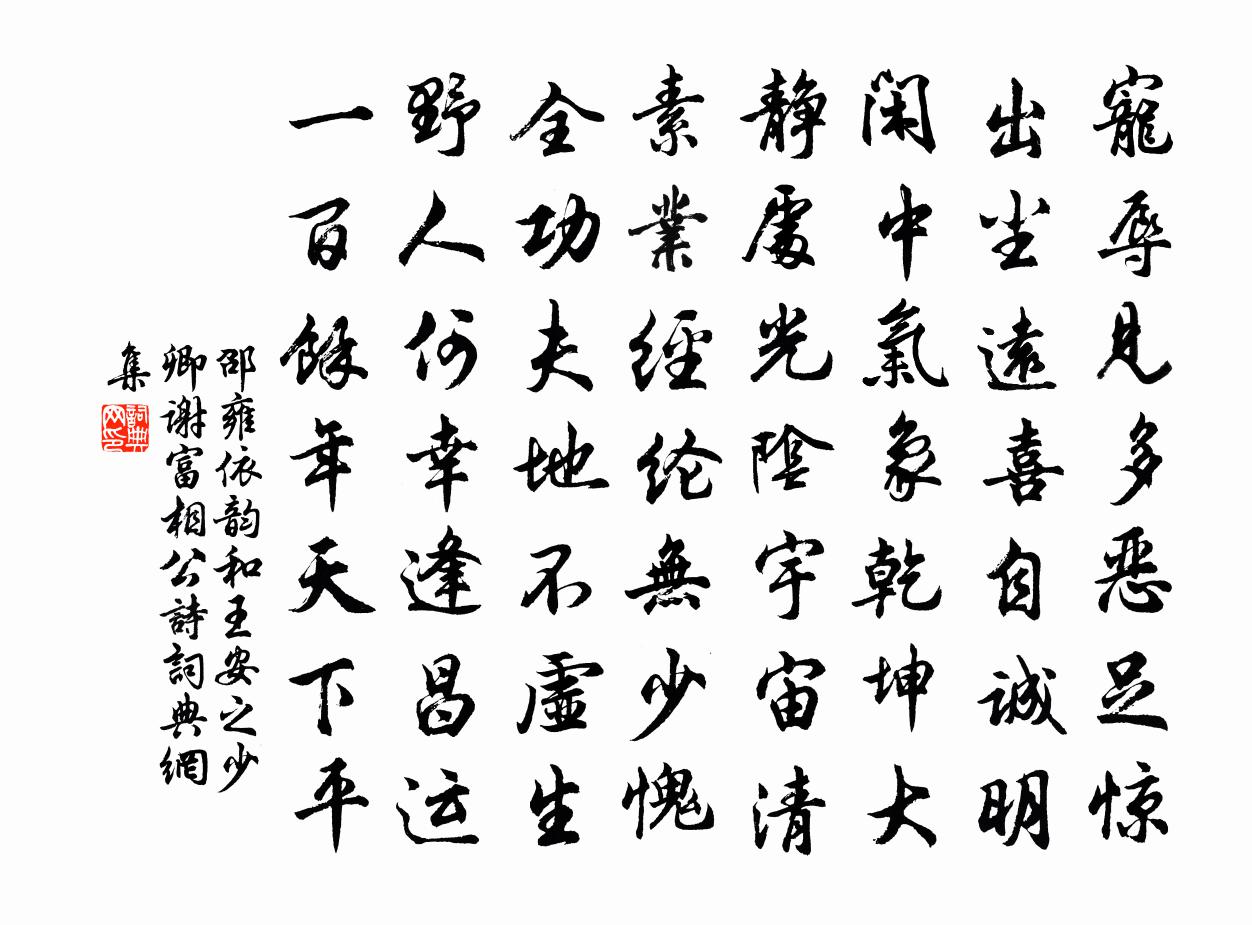 寵辱見多惡足惊
出尘遠喜自诚明
閑中氣象乾坤大
靜處光陰宇宙清
素業經纶無少愧
全功夫地不虛生
野人何幸逢昌运
一百餘年天下平
邵雍依韵和王安之少
卿谢富相公詩詞典網
集
詞典网印